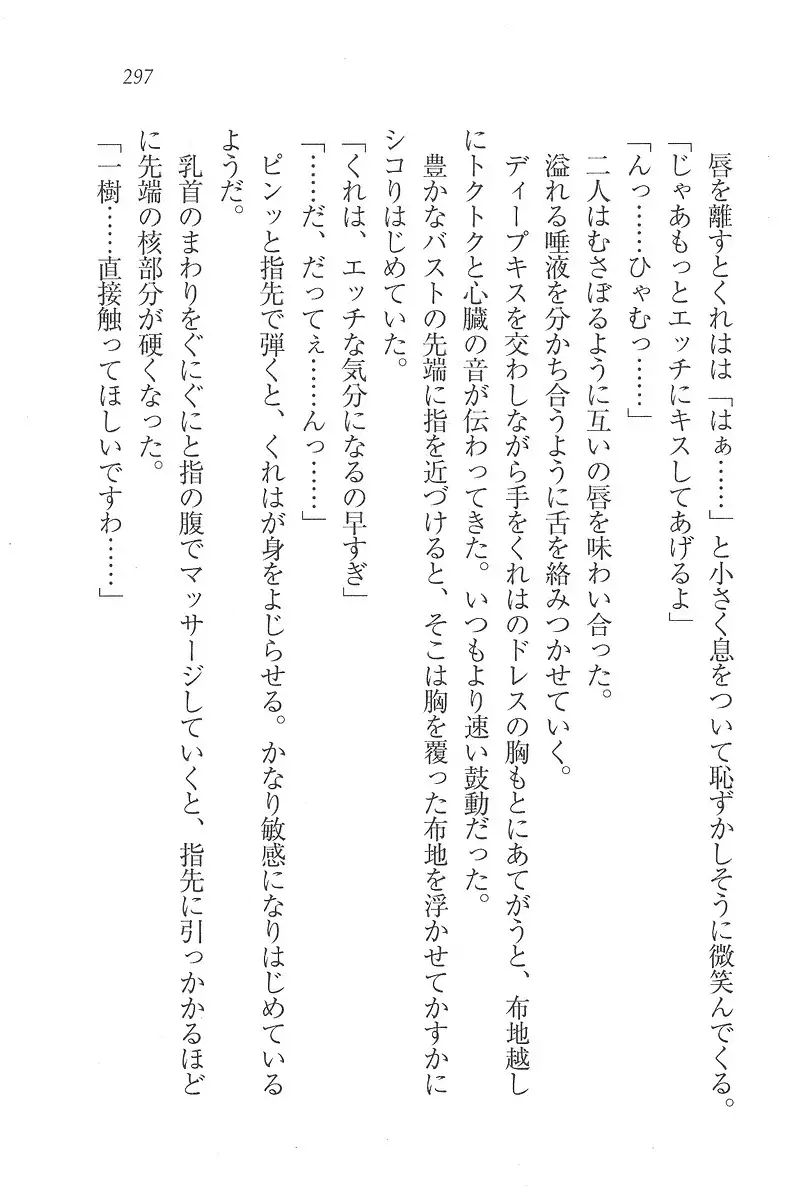 297
唇を離すとくれはは「はぁ……」と小さく息をついて恥ずかしそうに微笑んでくる。
「じゃあもっとエッチにキスしてあげるよ」
「んっ……ひゃむっ……」
二人はむさぼるように互いの唇を味わい合った。
溢れる唾液を分かち合うように舌を絡みつかせていく。
ディープキスを交わしながら手をくれはのドレスの胸もとにあてがうと、布地越し
にトクトクと心臓の音が伝わってきた。いつもより速い鼓動だった。
豊かなバストの先端に指を近づけると、そこは胸を覆った布地を浮かせてかすかに
シコりはじめていた。
「くれは、エッチな気分になるの早すぎ」
「……だ、だってぇ……んっ……」
ピンッと指先で弾くと、くれはが身をよじらせる。かなり敏感になりはじめている
ようだ。
乳首のまわりをぐにぐにと指の腹でマッサージしていくと、指先に引っかかるほど
に先端の核部分が硬くなった。
「一樹……直接触ってほしいですわ……」